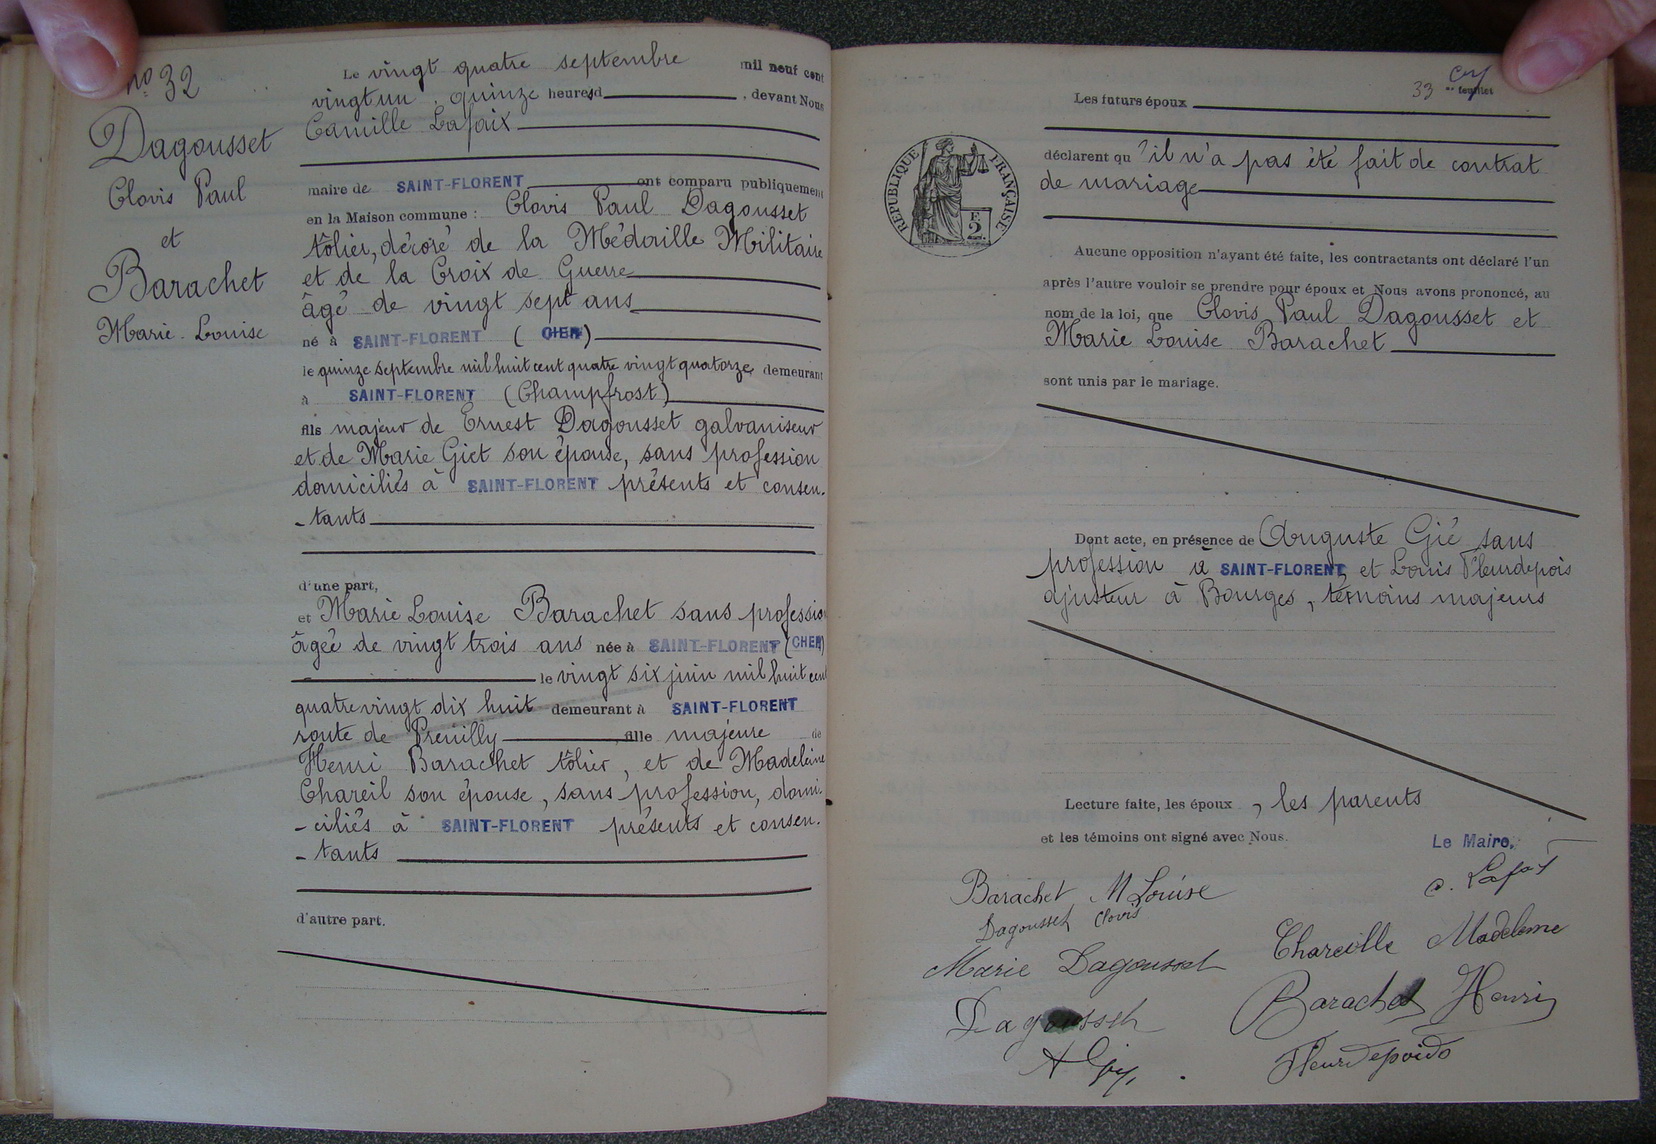 nº 32
Dagousset
Clovis Paul
et
Barachet
Marie-Louise
Le vingt quatre septembre mil neuf cent
vingt un, quinze heures, devant Nous
Camille Lafaix
maire de SAINT-FLORENT ont comparu publiquement
en la Maison commune : Clovis Paul Dagousset
tôlier, décoré de la Médaille Militaire
et de la Croix de Guerre
âgé de vingt sept ans
né à SAINT-FLORENT (CHER)
le quinze septembre mil huit cent quatre vingt quatorze, demeurant
à SAINT-FLORENT (Champfrost)
fils majeur de Ernest Dagousset galvaniseur
et de Marie Giet son épouse, sans profession
domiciliés à SAINT-FLORENT présents et consen-
-tants
d'une part,
et Marie Louise Barachet sans profession
âgée de vingt trois ans née à SAINT-FLORENT (CHER)
le vingt six juin mil huit cent
quatre vingt dix huit demeurant à SAINT-FLORENT
route de Preuilly, fille majeure de
Henri Barachet tôlier, et de Madeleine
Chareil son épouse, sans profession, domi-
-ciliés à SAINT-FLORENT présents et consen-
-tants
d'autre part.
33 feuillet
Les futurs époux
RÉPUBLIQUE FRANÇAISE
E
2
déclarent qu'il n'a pas été fait de contrat
de mariage
Aucune opposition n'ayant été faite, les contractants ont déclaré l'un
après l'autre vouloir se prendre pour époux et Nous avons prononcé, au
nom de la loi, que Clovis Paul Dagousset et
Marie Louise Barachet
sont unis par le mariage.
Dont acte, en présence de Auguste Gié sans
profession à SAINT-FLORENT, et Louis Fleurdepois
ajusteur à Bourges, témoins majeurs
Lecture faite, les époux, les parents
et les témoins ont signé avec Nous.
Le Maire,
C. Lafaix
Barachet M Louise
Dagousset Clovis
Marie Dagousset
Chareille Madeleine
Dagousset
Barachet Henri
A Gié
Fleurdepoids